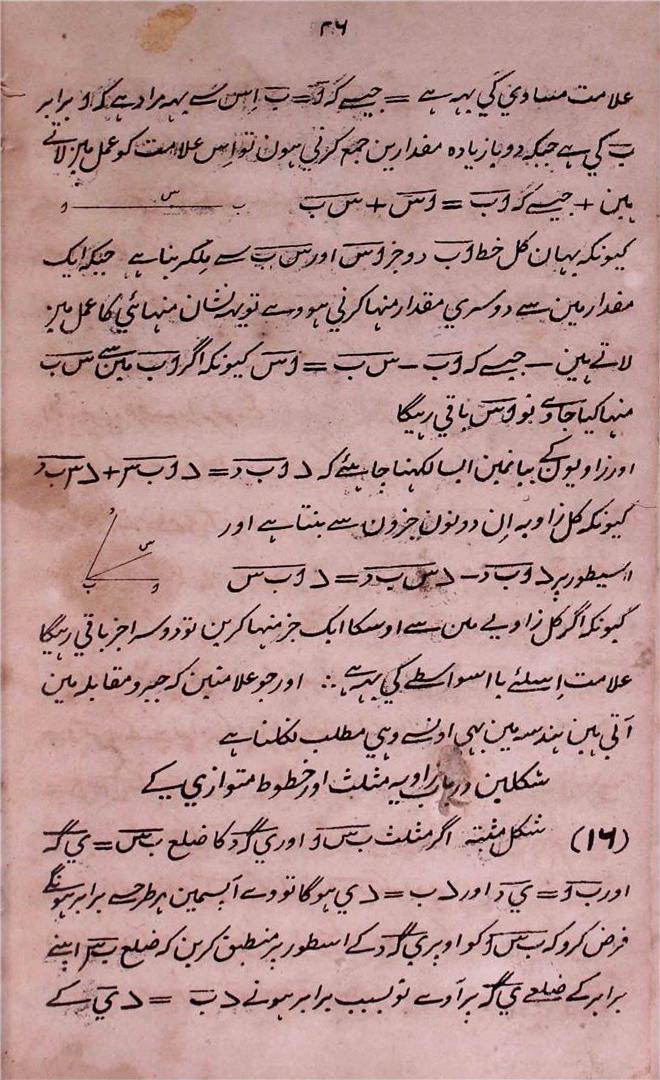 ۲۶
علامت مساوي کي یہہ ہے = جیسے کہ اَ = بَ اِس سے یہہ مراد ہے کہ ا برابر
ب کي ہے جبکہ دو یا زیادہ مقدارین جمع کرني ہون تو اِس علامت کو عمل مین لاتے
ہین + جیسے کہ اب = اس + س ب
ب س و
کیونکہ یہان کل خط اب دو جز اس اور س ب سے ملکر بنا ہے جبکہ ایک
مقدار مین سے دوسري مقدار منہا کرني ہووے تو یہہ نشان منہائي کا عمل مین
لاتے ہین − جیسے کہ اب − س ب = اس کیونکہ اگر اب مین سے س ب
منہا کیا جاوے تو اس باقي رہیگا
اور زاویون کے بیانمین ایسا لکہنا چاہئے کہ > اب د = > اب س + > س ب د
کیونکہ کل زاویہ اِن دونون جزون سے بنتا ہے اور
اسیطور پر > اب د − > س ب د = > اب س
س
ب
کیونکہ اگر کل زاویے مین سے اوسکا ایک جز منہا کرین تو دوسرا جز باقي رہیگا
علامت اِسلئے یا اسواسطے کي یہہ ہے ∴ اور جو علامتین کہ جبر و مقابلہ مین
آتي ہین ہندسہ مین بہي اونسے وہي مطلب نکلتا ہے
شکلین در باب زاویہ مثلث اور خطوط متوازي کے
(۱۶) شکل مثبتہ اگر مثلث ب س ا اور ي گ د کا ضلع ب س = ي گ
اور ب ا = ي د اور > ب = > ي ہوگا تو وے آپسمین ہرطرحسے برابر ہونگے
فرض کرو کہ ب س ا کو اوپر ي گ د کے اسطور پر منطبق کرین کہ ضلع ب س اپنے
برابر کے ضلعے ي گ پر آوے تو بسبب برابر ہونے > ب = > ي کے